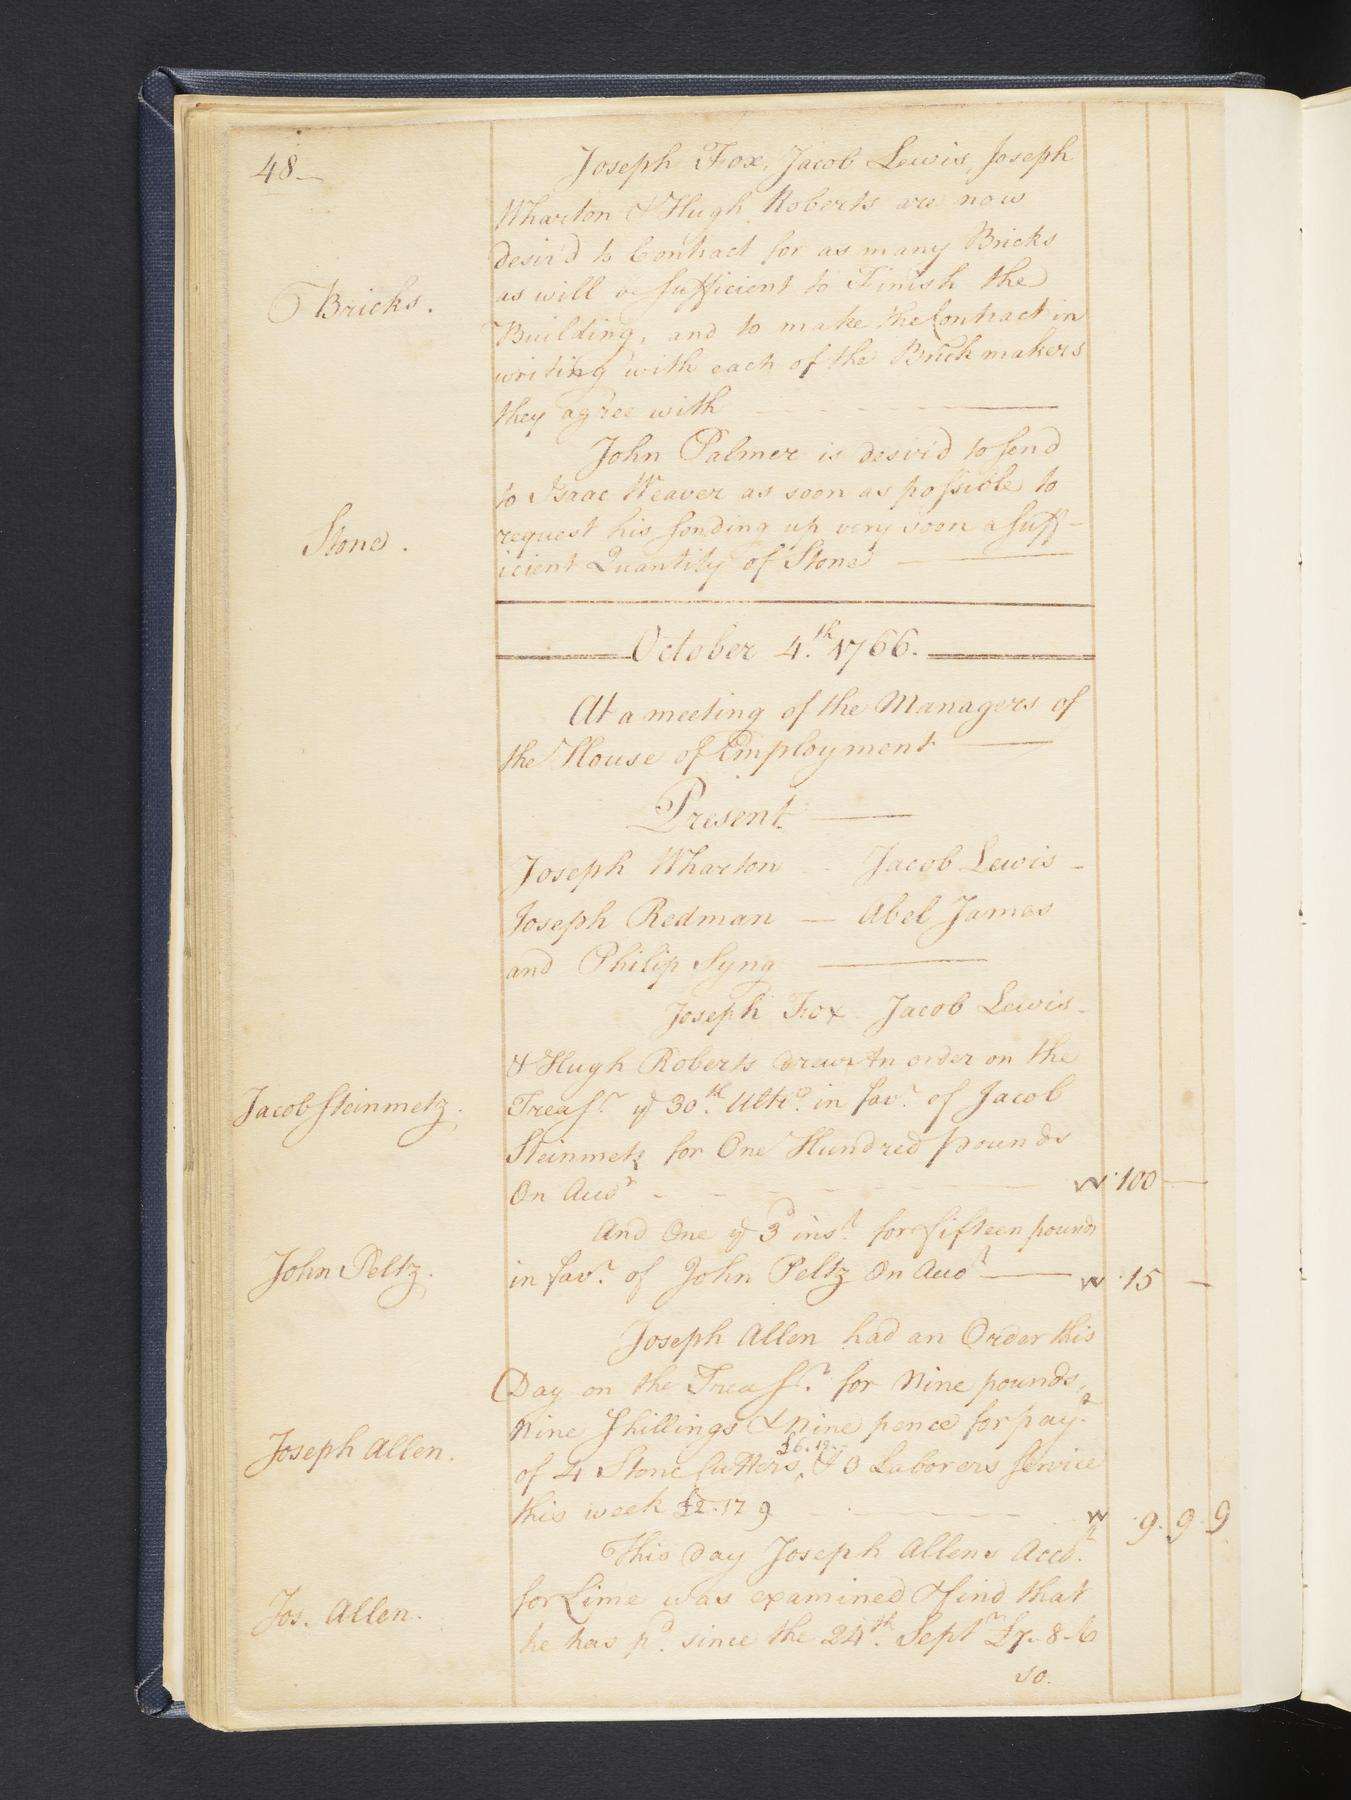 48
Joseph Fox, Jacob Lewis, Joseph
Wharton & Hugh Roberts are now
desir'd to Contract for as many Bricks
Bricks.
as will be sufficient to Finish the
Building, and to make the Contract in
writing with each of the Brickmakers
they agree with
John Palmer is desir'd to send
to Isaac Weaver as soon as possible to
Stone.
request his sending up very soon a suff-
icient Quantity of Stone
October 4.th 1766.
At a meeting of the Managers of
the House of Employment
Present
Joseph Wharton - Jacob Lewis -
Joseph Redman — Abel James
and Philip Syng
Joseph Fox Jacob Lewis
& Hugh Roberts drew An order on the
Jacob Steinmetz.
Treasr. ye 30.th Ulto. in favr. of Jacob
Steinmetz for One Hundred pounds
On Acct - 100 —
And One ye 3d inst. for fifteen pounds
John Peltz.
in favr. of John Peltz On Acct — 15 —
Joseph Allen had an Order this
Day on the Treasr. for Nine pounds,
Nine Shillings & Nine pence for payt.
Joseph Allen.
of 4 Stone Cutters, £6.12 & 3 Laborers service
this week £2.17 9 9. 9. 9
This day Joseph Allens Acct.
Jos. Allen.
for Lime was examined & find that
he has pd. since the 24th. Septr £7.8.6
so.